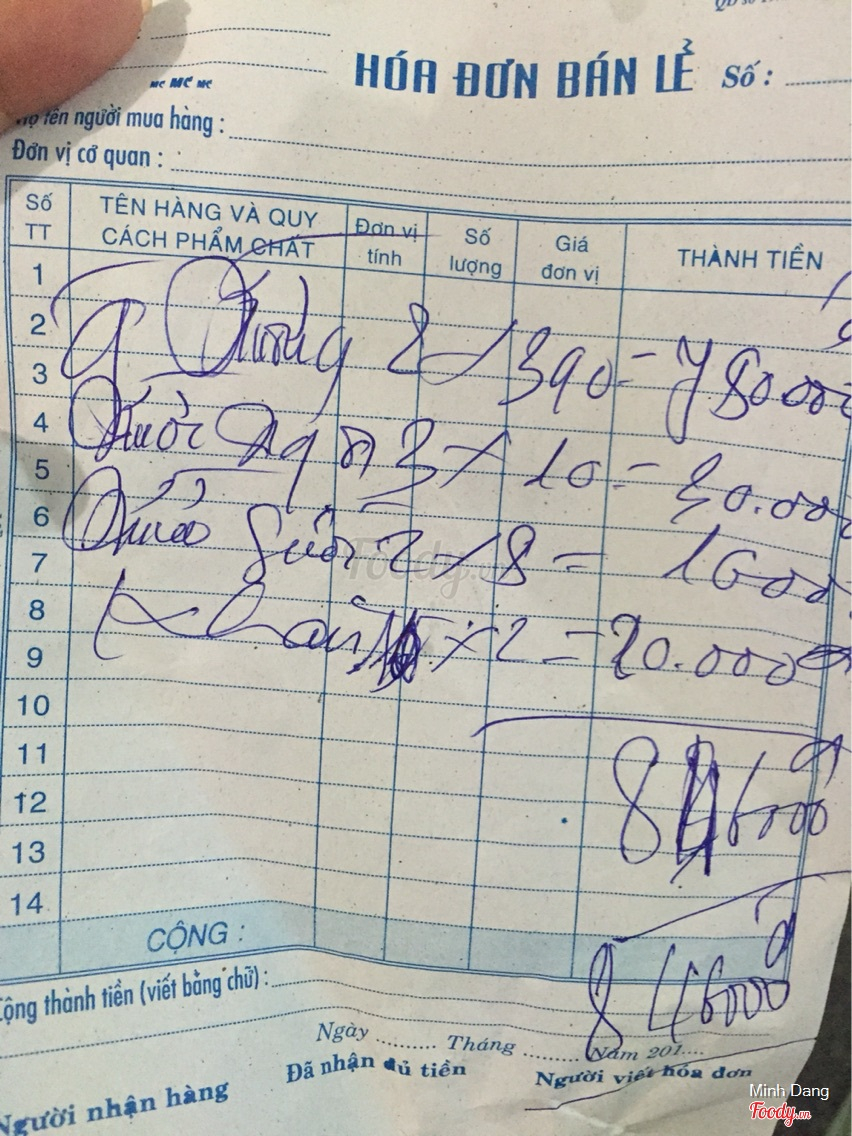 HÓA ĐƠN BÁN LẺ Số :
MC MC MC
tên người mua hàng :
Đơn vị cơ quan :
Số TT TÊN HÀNG VÀ QUY CÁCH PHẨM CHẤT Đơn vị tính Số lượng Giá đơn vị THÀNH TIỀN
1
2
2 390 = 780.000
3
4
3 x 10 = 30.000
5
6
2 8 = 16000
7
8
Khăn x 2 = 20.000
9
10
11
846000
12
13
14
CỘNG :
846000
Cộng thành tiền (viết bằng chữ) :
Ngày ......... Tháng ......... Năm 201....
Người nhận hàng Đã nhận đủ tiền Người viết hóa đơn
Foody.vn
Minh Dang
Foody.vn